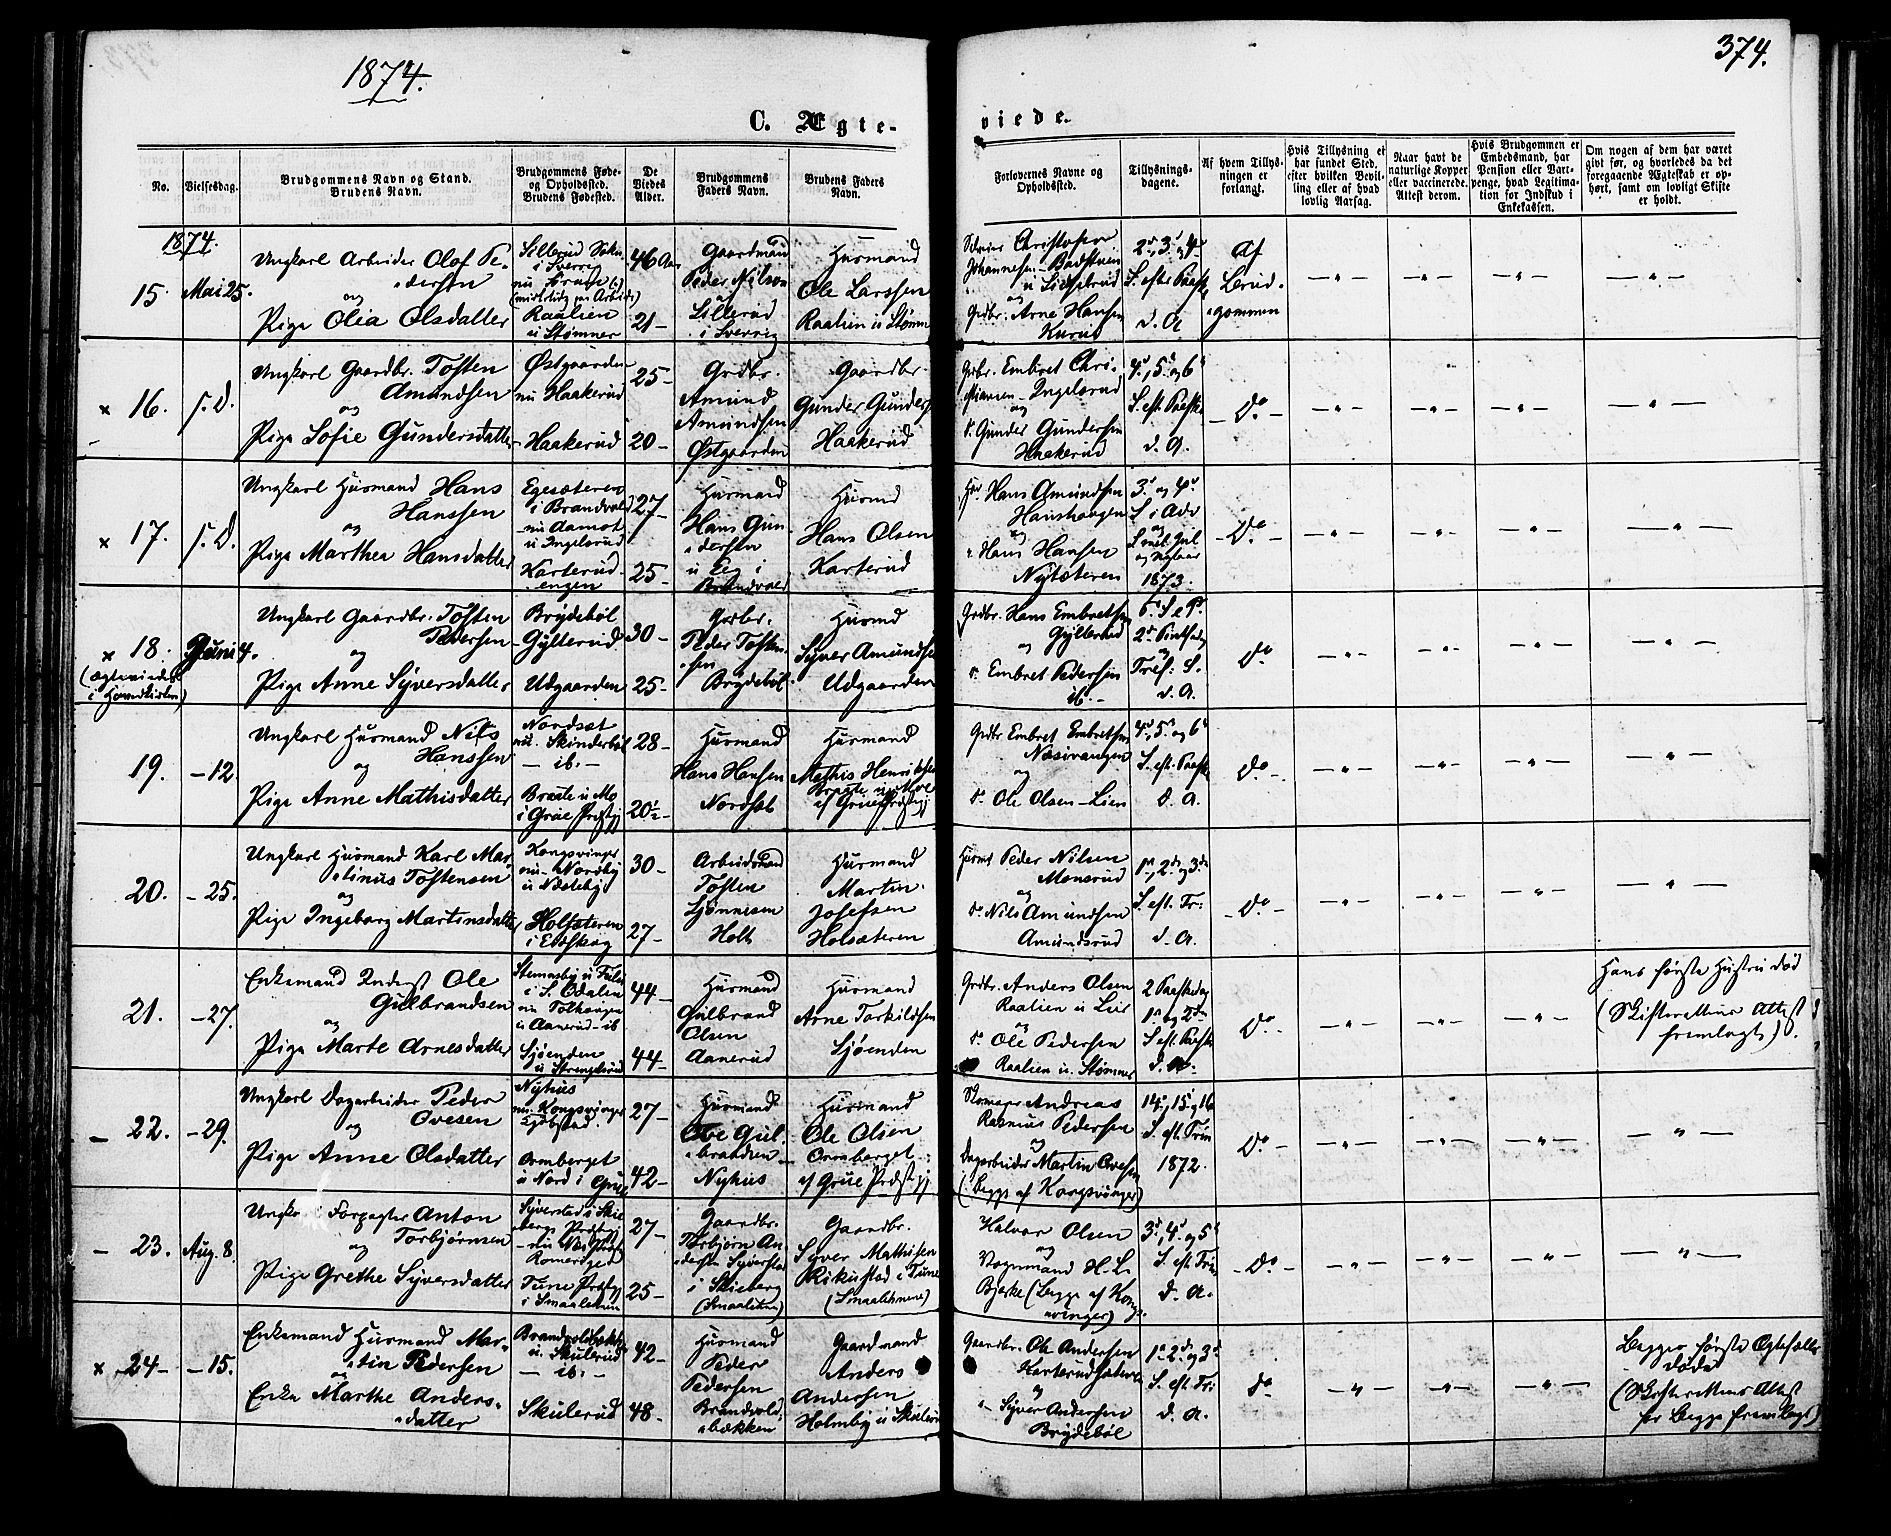 1874.
374.
C. Ægte-
viede.
No.
Vielsesdag.
Brudgommens Navn og Stand.
Brudens Navn.
Brudgommens Føde-
og Opholdssted.
Brudens Fødested.
De
Viedes
Alder.
Brudgommens
Faders Navn.
Brudens Faders
Navn.
Forlovernes Navne og
Opholdssted.
Tillysnings-
dagene.
Af hvem Tillys-
ningen er
forlangt.
Hvis Tillysning ei
har fundet Sted,
efter hvilken Bevil-
ling eller af hvad
lovlig Aarsag.
Naar havt de
naturlige Kopper
eller vaccinerede.
Attest derom.
Hvis Brudgommen er
Embedsmand, har
Pension eller Vart-
penge, hvad Legitima-
tion for Indskud i
Enkekassen.
Om nogen af dem har været
givt før, og hvorledes da det
foregaaende Ægteskab er op-
hørt, samt om lovligt Skifte
er holdt.
1874.
15
Mai 25.
Ungkarl Arbeider Olof Pe-
dersen
og
Pige Olia Olsdatter
Sillerud Sokn
i Sverrig
Raalien
u Stømner
46 Aar
21-
Gaardmand
Peder Nilson
af
Sillerud
i Sverrig
Husmand
Ole Larssen
Raalien u Stømn
Christofer
Johannesen
og
Grdbr. Arne Hansen
2d, 3d og 4d
S. efter Paaske
d. A
Af
Brud-
gommen
16.
s. D.
Ungkarl Gaardbr. Tosten
Amundsen
og
Pige Sofie Gundersdatter
Østgaarden
nu Haakerud
Haakerud
25-
20-
Grdbr.
Amund
Amundsen
Østgaarden
Gaardbr.
Gunder Gunders
Haakerud
Grdbr. Embret Chri-
stiansen Ingelsrud
og
do Gunder Gundersen
Haakerud
4d, 5d og 6d
S. eft. Paaske
d. A.
Do
17.
s. D.
Ungkarl Husmand Hans
Hanssen
og
Pige Marthea Hansdatter
Egesæteren
i Brandvald
nu Aamot
u Ingelsrud
Karterud-
engen
27-
25-
Husmand
Hans Gun-
dersen
u Eeg i
Brandvald
Husmd
Hans Olsen
Karterud
Hans Amundsen
Hanshaugen
og
Hans Hansen
Nysæteren
3d og 4d
S i Adv
og
1873.
Do
18.
(Ægteviede
i Hovedkirken)
Juni 4.
Ungkarl Gaardbr. Tosten
Pedersen
og
Pige Anne Syversdatter
Brydebøl
Gylterud
Udgaarden
30-
25-
Grdbr.
Peder Tosten-
sen
Brydebøl
Husmd
Syver Amundse
Udgaarden
Grdbr. Hans Embretsen
Gylterud
og
do Embret Pedersen
ib.
6d S e P.
2d Pintsedag
og
Tref: S.
d. A.
Do
19.
-12.
Ungkarl Husmand Nils
Hanssen
og
Pige Anne Mathisdatter
Nordset
nu Skinderbøl
- ib. -
Braate u Mo
i Grue Præstgj
28-
20½-
Husmand
Hans Hansen
Nordset
Husmand
Mathis Henriksen
Braate u Mo
af Grue Præstgj
Grdbr Embret Embretsen
og
do Ole Olsen - Lien
4d, 5d og 6d
S. eft. Paaske
d. A.
Do
20.
-25.
Ungkarl Husmand Karl Mar-
tinus Tostensen
og
Pige Ingeborg Martinsdatter
Kongsvinger
nu Nordby
u Næteby
Holtsæteren
i Eidskog
30-
27-
Arbeidsmand
Tosten
Holt
Husmand
Martin
Josefsen
Holsæteren
Husmd Peder Nilsen
Monsrud
og
do Nils Amundsen
Amundsrud
1d, 2d og 3d
S. eft. Tri:
d. A.
Do
21.
-27.
Enkemand Inderst Ole
Gulbrandsen
og
Pige Marte Arnesdatter
i S. Odalen
u Aanerud ib
Sjøenden
44
44-
Husmand
Gulbrand
Olsen
Aanerud
Husmand
Arne Torkildsen
Sjøenden
Grdbr. Anders Olsen
Raalien u Lier
og
do Ole Pedersen
Raalien u. Stømner
2 Paaskedag
1d og 2d
S. eft. Paaske
d. A.
Do
Hans første Hustru død
(Skifterettens Attest
fremlagt).
22.
-29.
Ungkarl Dagarbeider Peder
Ovesen
og
Pige Anne Olsdatter
Nyhus
nu Kongsvinger
Kjøbstad.
Ormberget
u Nord i Grue
27-
42-
Husmand
Ove Gul-
brandsen
Nyhus
Husmand
Ole Olsen
Ormberget
af Grue Præstgj
Skomager Andreas
Rasmus Pedersen
og
Dagarbeider Martin Ovesen
(Begge af Kongsvinger)
14d, 15d og 16
S. eft. Trin
1872.
Do
23.
Aug. 8.
Ungkarl Forpagter Anton
Torbjørnsen
og
Pige Grethe Syversdatter
Syverstad i Skie-
bergs Præstgj
Romerige
Tune Præstgj
i Smaalenene
27-
25-
Gaardbr.
Torbjørn An-
dersen Syverstad
i Skieberg
(Smaalenene)
Gaardbr.
Syver Mathisen
Rikustad i Tune
(Smaalenene)
Halvor Olsen
og
Vognmand H. L.
Bjerke (Begge af Kongs-
vinger)
3d, 4d og 5d
S. eft Trin
d. A.
Do
24-
-15.
Enkemand Husmand Mar-
tin Pedersen
og
Enke Marthe Anders-
datter
Brandvoldbækken
u. Skulerud
- ib. -
Skulerud
42-
48-
Husmand
Peder
Pedersen
Brandvold-
bækken
Gaardmand
Anders
Andersen
Holmby u Skulerud
Gaardbr. Ole Andersen
Karterudsæteren
og
Syver Andersen
Brydebøl
1d, 2d og 3d
S. eft. Tri
d. A.
do
Begges første Ægtefæller
døde
(Skifterettens Attest
for Begge fremlagt)